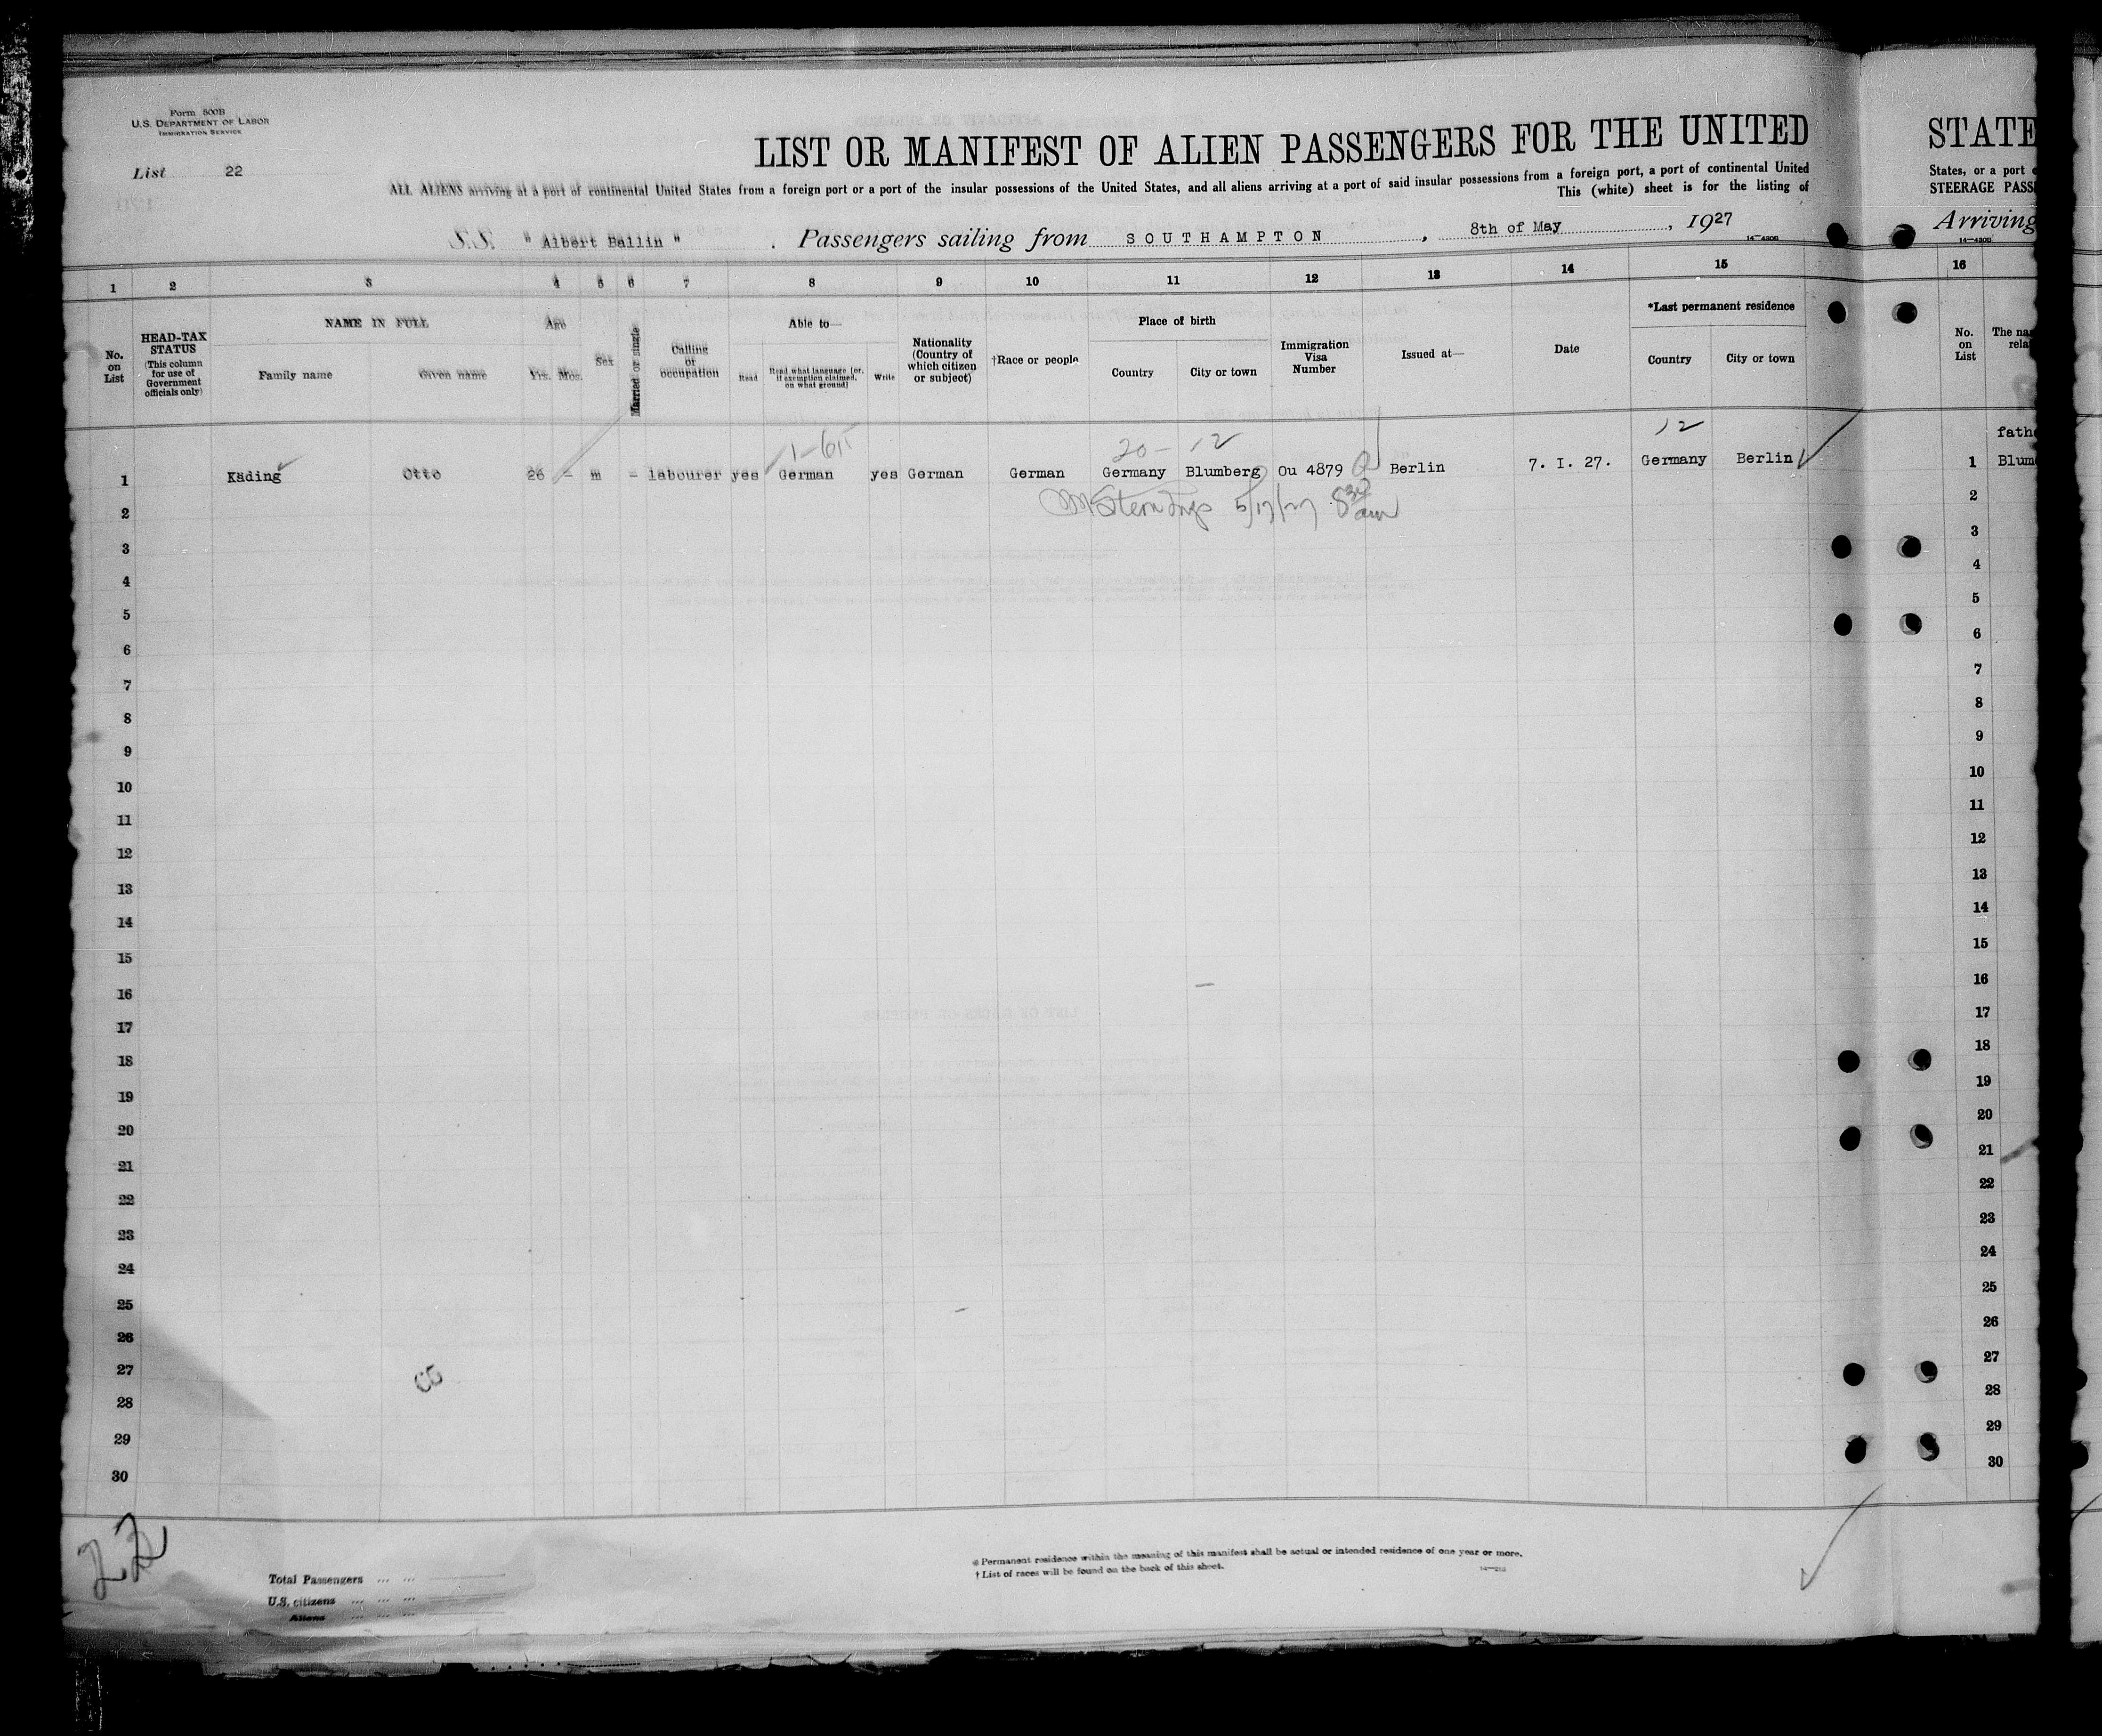 Form 500B
U.S. DEPARTMENT OF LABOR
IMMIGRATION SERVICE
List 22
LIST OR MANIFEST OF ALIEN PASSENGERS FOR THE UNITED
ALL ALIENS arriving at a port of continental United States from a foreign port or a port of the insular possessions of the United States, and all aliens arriving at a port of said insular possessions from a foreign port, a port of continental United
This (white) sheet is for the listing of
S.S. " Albert Ballin " . Passengers sailing from SOUTHAMPTON , 8th of May , 1927
STATE
States, or a port
STEERAGE PASS
Arriving
1 2 3 4 5 6 7 8 9 10 11 12 13 14 15 16
No. on List
HEAD-TAX STATUS
(This column for use of Government officials only)
NAME IN FULL
Family name Given name
Age
Yrs. Mos.
Sex
Married or single
Calling or occupation
Able to—
Read
Read what language (or, if exemption claimed, on what ground)
Write
Nationality (Country of which citizen or subject)
†Race or people
Place of birth
Country City or town
Immigration Visa Number
Issued at—
Date
*Last permanent residence
Country City or town
No. on List
The
rela
1-615 20- 12 12
1 Käding Otto 26 - m - labourer yes German yes German German Germany Blumberg Ou 4879 Berlin 7. I. 27. Germany Berlin
fath
1 Blum
5/17/27 8 30 am
2 2
3 3
4 4
5 5
6 6
7 7
8 8
9 9
10 10
11 11
12 12
13 13
14 14
15 15
16 16
17 17
18 18
19 19
20 20
21 21
22 22
23 23
24 24
25 25
26 26
27 27
28 28
29 29
30 30
22
Total Passengers ... ...
U.S. citizens ... ... ...
Aliens ... ... ...
* Permanent residence within the meaning of this manifest shall be actual or intended residence of one year or more.
† List of races will be found on the back of this sheet.